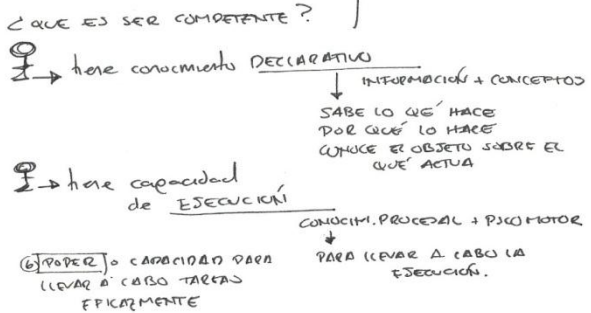 ¿QUE ES SER COMPETENTE?
tiene conocimiento DECLARATIVO
INFORMACIÓN + CONCEPTOS
SABE LO QUÉ HACE
POR QUÉ LO HACE
CONOCE EL OBJETO SOBRE EL
QUÉ ACTUA
tiene capacidad
de EJECUCIÓN
CONOCIM. PROCESAL + PSICOMOTOR
PARA LLEVAR A CABO LA
EJECUCIÓN.
⑥ PODER o CAPACIDAD PARA
LLEVAR A CABO TAREAS
EFICAZMENTE